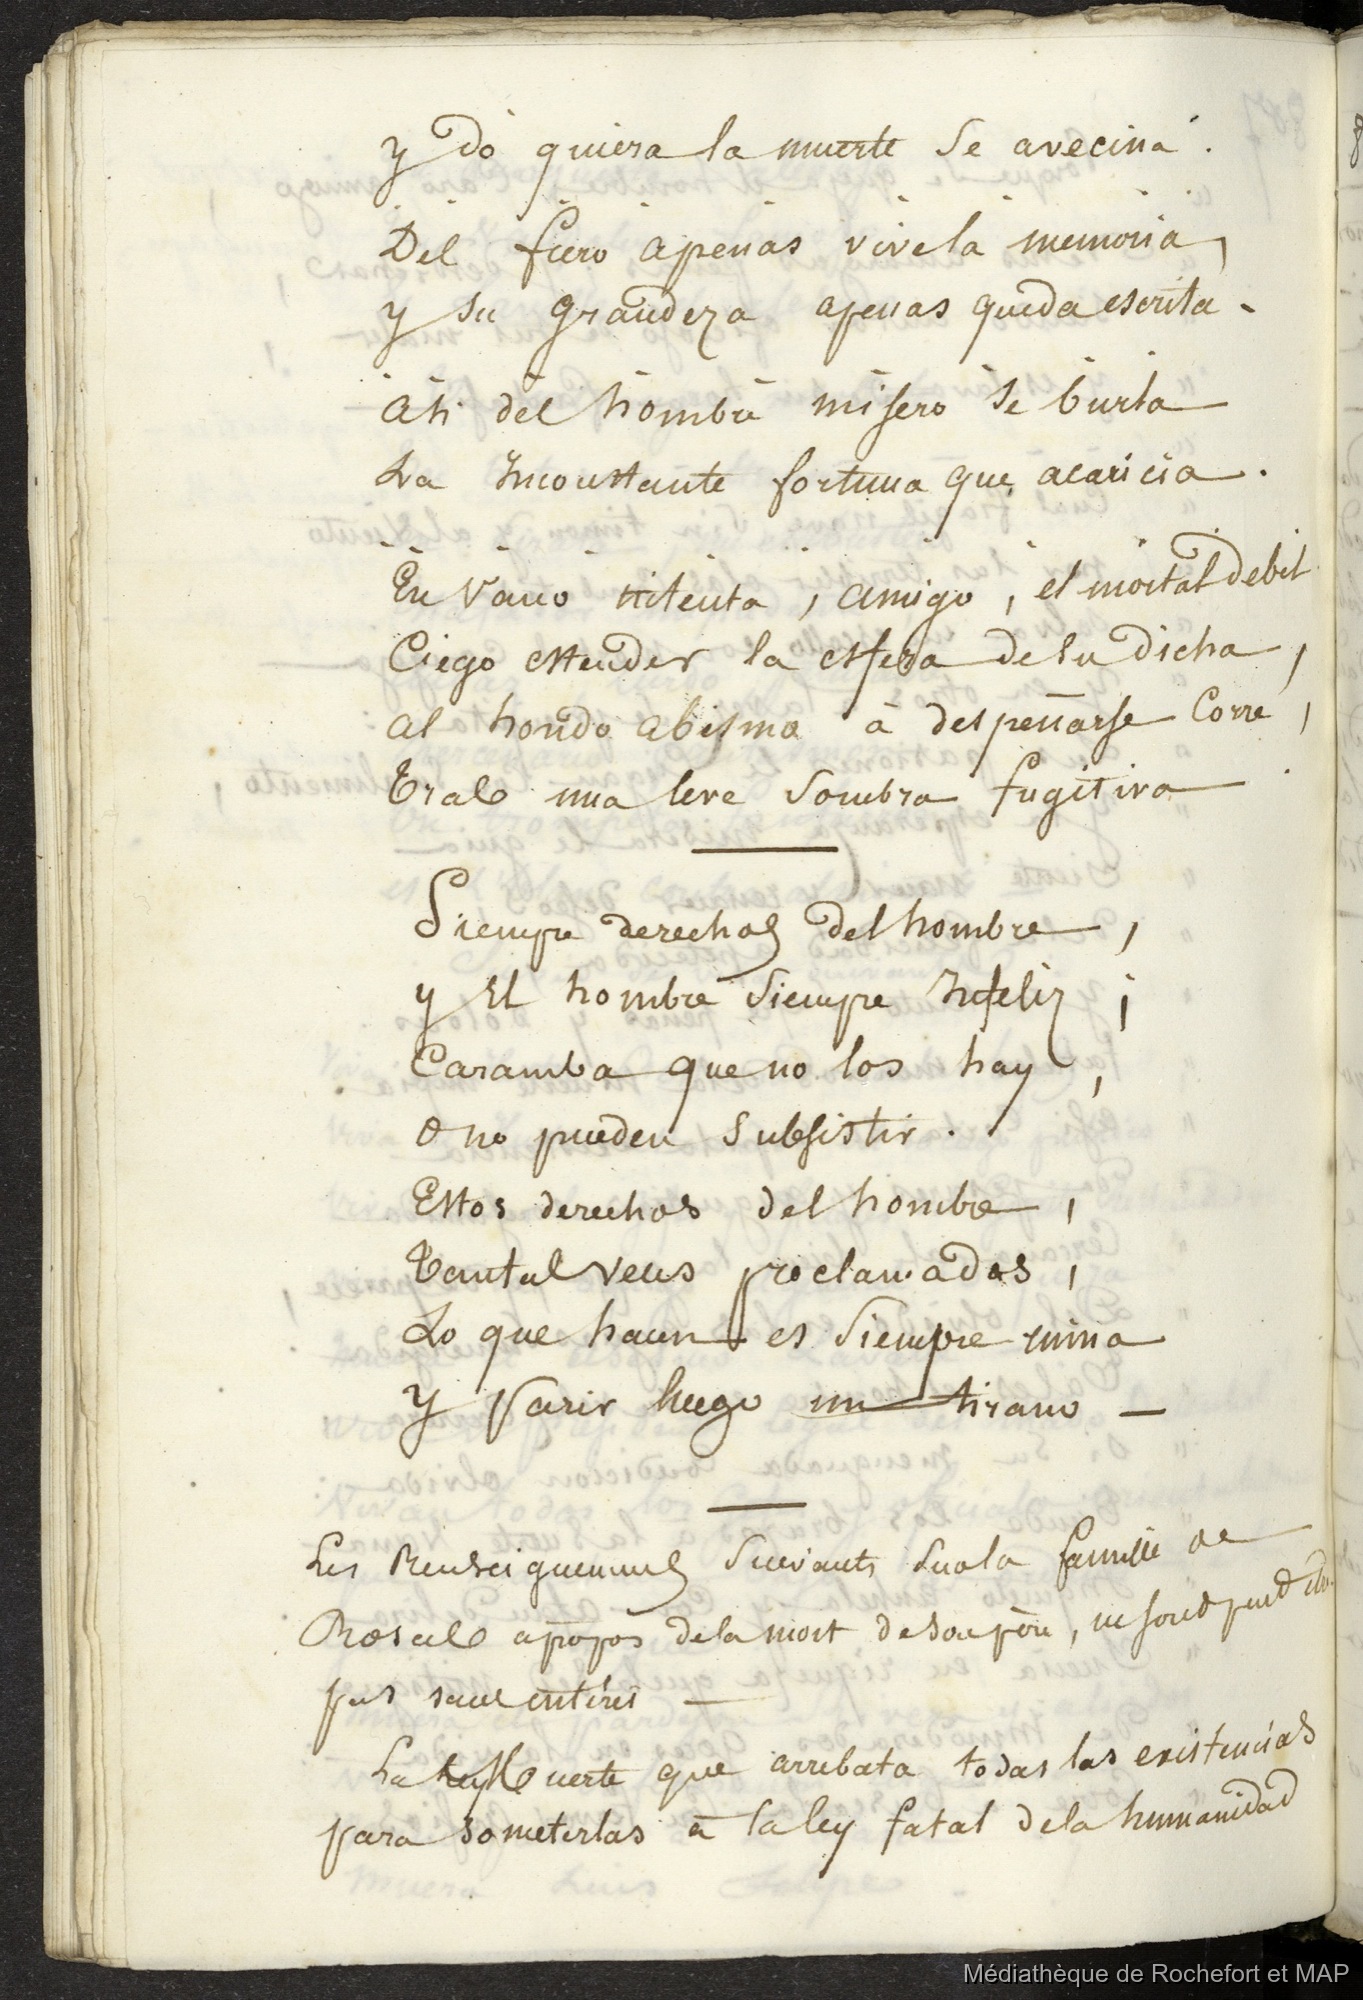 y dó quiera la muerte se avecina.
Del fiero apenas vive la memoria,
y su grandeza apenas queda escrita.
Ah del hombre misero se burla
La Inconstante fortuna que acaricia.
En vano intenta, amigo, el mortal debil
Ciego estender la esfera de su dicha,
al hondo abismo á despeñarse Corre,
Tras una leve sombra fugitiva
Siempre derechos del hombre,
y El hombre siempre Infeliz;
Caramba que no los hay,
o no pueden subsistir.
Estos derechos del hombre,
Tantas veces proclamados,
Lo que hacen es siempre ruina
y Parir luego un tirano —
Les Renseignemens Suivants sur la famille de
Rosas apropos de la mort de son père, ne sont peut etre
pas sans intérêt —
La Muerte que arrebata todas las existencias
para someterlas á la ley fatal de la humanidad
Médiathèque de Rochefort et MAP